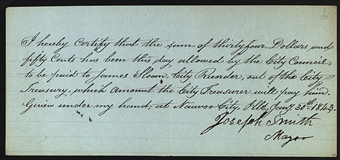 I hereby Certify that the sum of thirty four Dollars and
fifty Cents has been this day allowed by the City Council
to be paid to James Sloan City Recorder, out of the City
Treasury, which amount the City Treasurer will pay him.
Given under my hand, at Nauvoo City, Ills. Jany. 30th 1843.
Joseph Smith
Mayor